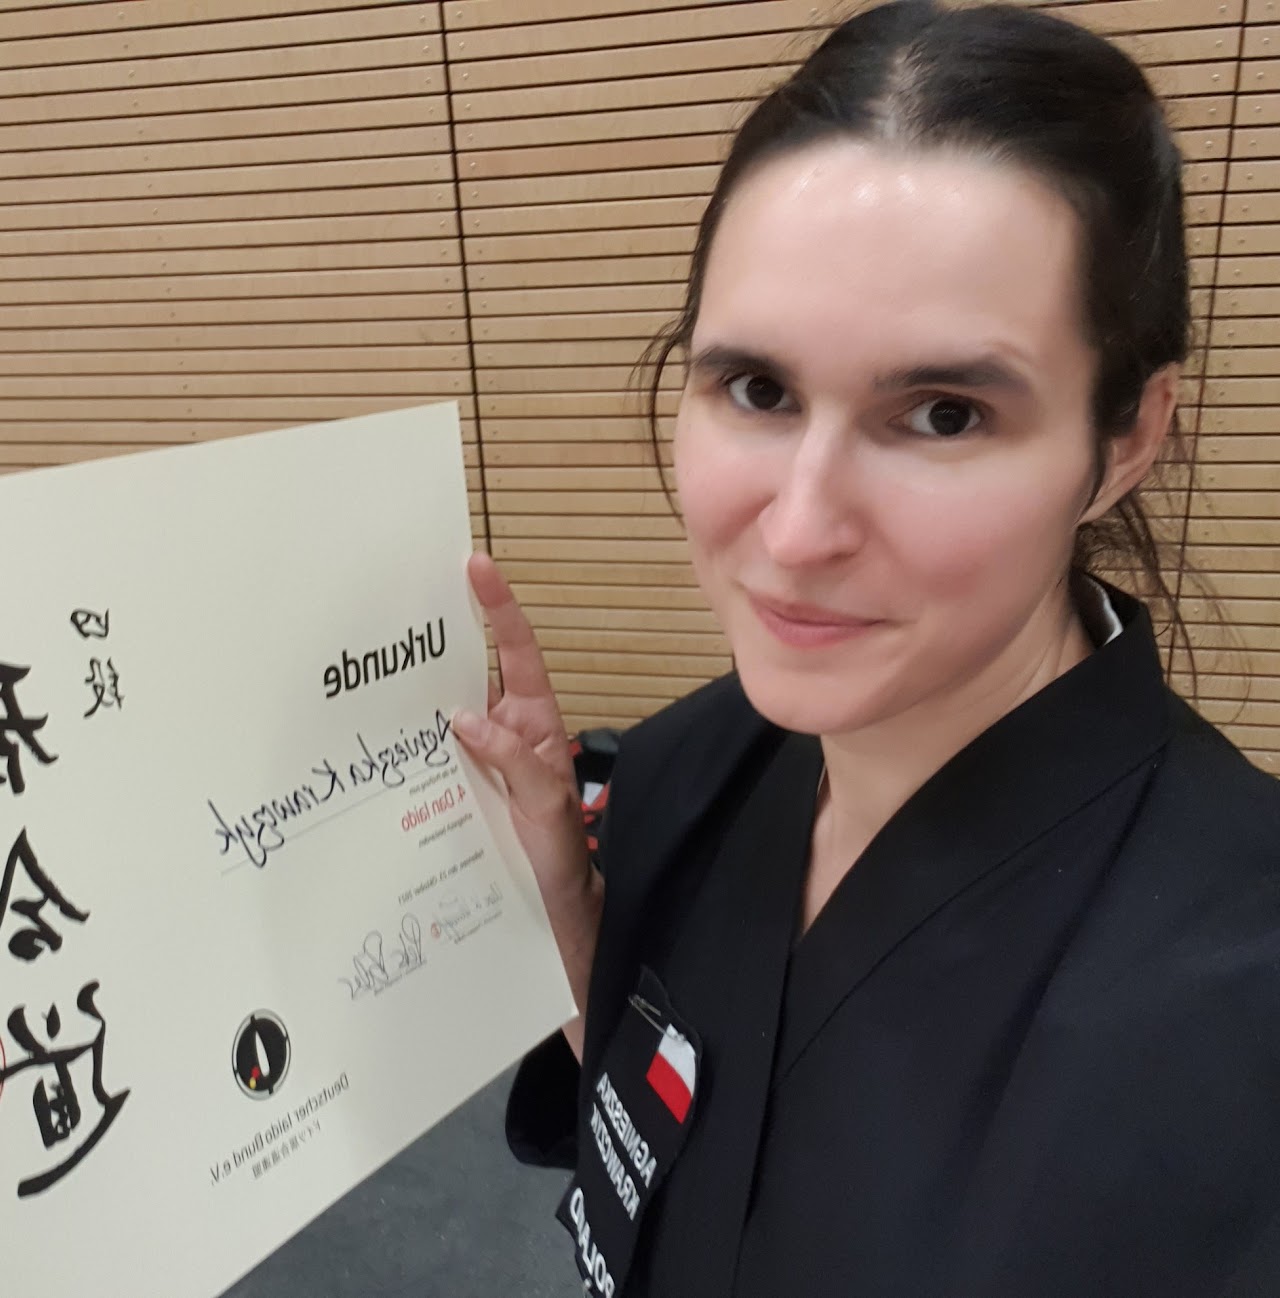 Urkunde
Agnieszka Krawczyk
hat die Prüfung zum
4. Dan Iaido
erfolgreich bestanden.
den Oktober 2021
Deutscher Iaido Bund e.V.
ドイツ居合道連盟
四段
居合道
AGNIESZKA
KRAWCZYK
POLAND